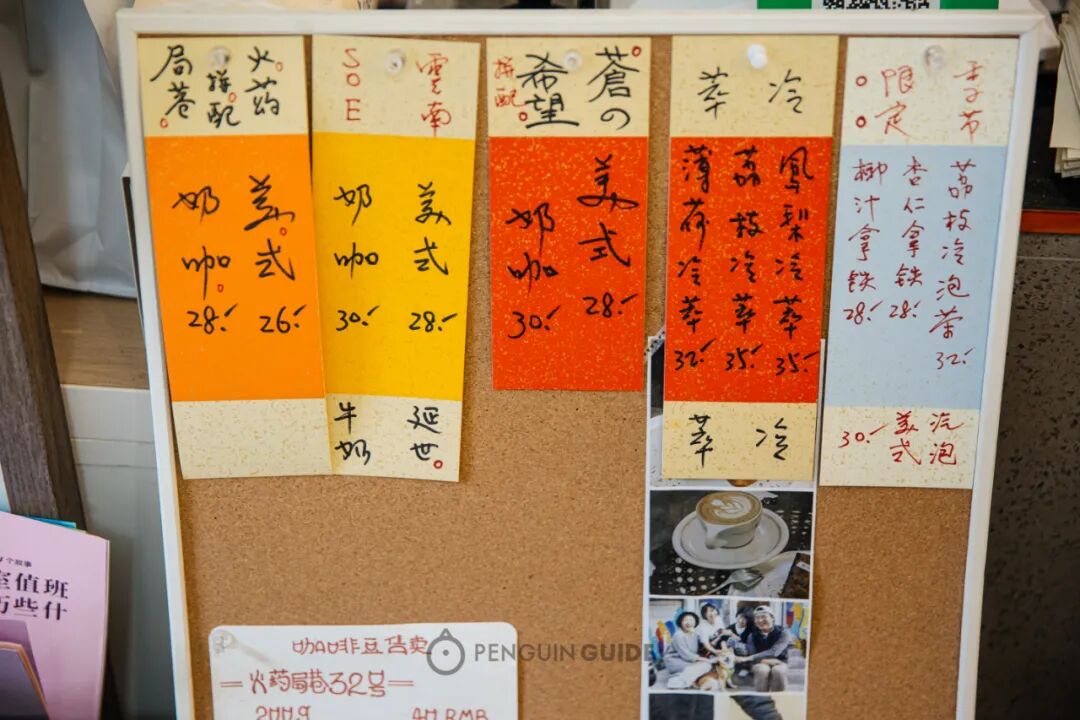 火药
拼配
局巷
美式 26.-
奶咖 28.-
雲南
SOE
美式 28.-
奶咖 30.-
延世
牛奶
蒼の
希望
拼配
美式 28.-
奶咖 30.-
冷萃
鳳梨冷萃 35.-
荔枝冷萃 35.-
薄荷冷萃 32.-
冷萃
季节
限定
荔枝冷泡茶 32.-
杏仁拿铁 28.-
椰汁拿铁 28.-
汽泡
美式 30.-
个故事
值班
些什
咖啡豆售卖
=火药局巷32号=
RMB
PENGUIN GUIDE